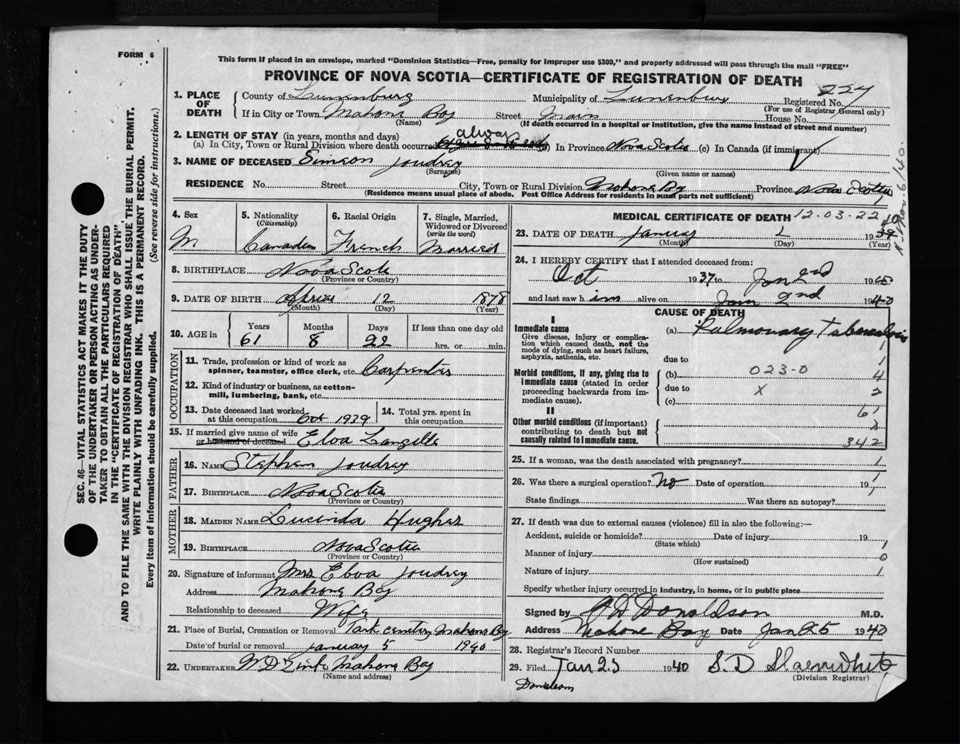 FORM 6
This form if placed in an envelope, marked "Dominion Statistics—Free, penalty for improper use $300," and properly addressed will pass through the mail "FREE"
PROVINCE OF NOVA SCOTIA—CERTIFICATE OF REGISTRATION OF DEATH
1. PLACE OF DEATH
County of Lunenburg Municipality of Lunenburg Registered No. 227
(For use of Registrar General only)
If in City or Town Mahone Bay Street Main House No.
(Name) (If death occurred in a hospital or institution, give the name instead of street and number)
2. LENGTH OF STAY (in years, months and days)
always
(a) In City, Town or Rural Division where death occurred (b) In Province Nova Scotia (c) In Canada (if immigrant)
3. NAME OF DECEASED Simeon Joudrey
(Surname) (Given name or names)
RESIDENCE No. Street City, Town or Rural Division Mahone Bay Province Nova Scotia
(Residence means usual place of abode. Post Office Address for residents in such parts not sufficient)
4. Sex
M
5. Nationality
(Citizenship)
Canadian
6. Racial Origin
French
7. Single, Married, Widowed or Divorced
(write the word)
Married
8. BIRTHPLACE Nova Scotia
(Province or Country)
9. DATE OF BIRTH April 12 1878
(Month) (Day) (Year)
10. AGE in Years Months Days If less than one day old
61 8 22 hrs. or min.
OCCUPATION
11. Trade, profession or kind of work as
spinner, teamster, office clerk, etc. Carpenter
12. Kind of industry or business, as cotton-
mill, lumbering, bank, etc.
13. Date deceased last worked
at this occupation Oct 1929
14. Total yrs. spent in
this occupation
15. If married give name of wife
or husband of deceased Elva Langille
FATHER
16. NAME Stephen Joudrey
17. BIRTHPLACE Nova Scotia
(Province or Country)
MOTHER
18. MAIDEN NAME Lucinda Hughes
19. BIRTHPLACE Nova Scotia
(Province or Country)
20. Signature of informant Mrs Elva Joudrey
Address Mahone Bay
Relationship to deceased Wife
21. Place of Burial, Cremation or Removal Park cemetery Mahone Bay
Date of burial or removal January 5 1940
22. UNDERTAKER Mahone Bay
(Name and address)
MEDICAL CERTIFICATE OF DEATH 12-03-22
23. DATE OF DEATH January 19
(Month) (Day) (Year)
24. I HEREBY CERTIFY that I attended deceased from:
Oct 1937 to Jan 2nd 1940
and last saw him alive on Jan 2nd 1940
CAUSE OF DEATH
I
Immediate cause
Give disease, injury or complica-
tion which caused death, not the
mode of dying, such as heart failure,
asphyxia, asthenia, etc.
(a) Pulmonary Tuberculosis
1
due to 1
Morbid conditions, if any, giving rise to
immediate cause (stated in order
proceeding backwards from im-
mediate cause).
(b) 023-0 4
due to X 2
(c) 61
II
Other morbid conditions (if important)
contributing to death but not
causally related to immediate cause.
2
342
25. If a woman, was the death associated with pregnancy? 1
26. Was there a surgical operation? No Date of operation 19
State findings Was there an autopsy?
27. If death was due to external causes (violence) fill in also the following:—
Accident, suicide or homicide? Date of injury 19 1
(State which)
Manner of injury 0
(How sustained)
Nature of injury 1
Specify whether injury occurred in industry, in home, or in public place
Signed by Donaldson M.D.
Address Mahone Bay Date Jan 25 1940
28. Registrar's Record Number
29. Filed Jan 25 1940 S. D
(Division Registrar)
SEC. 46—VITAL STATISTICS ACT MAKES IT THE DUTY
OF THE UNDERTAKER OR PERSON ACTING AS UNDER-
TAKER TO OBTAIN ALL THE PARTICULARS REQUIRED
IN THE "CERTIFICATE OF REGISTRATION OF DEATH"
AND TO FILE THE SAME WITH THE DIVISION REGISTRAR WHO SHALL ISSUE THE BURIAL PERMIT.
WRITE PLAINLY WITH UNFADING INK. THIS IS A PERMANENT RECORD.
Every item of information should be carefully supplied. (See reverse side for instructions.)